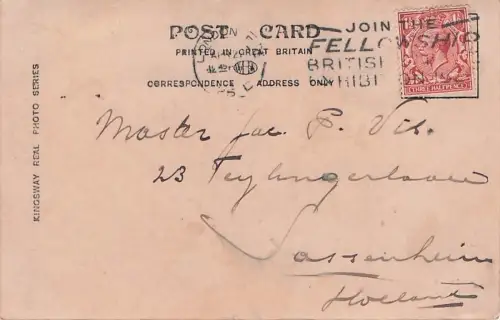 POST CARD
PRINTED IN GREAT BRITAIN
CORRESPONDENCE ADDRESS ONLY
LONDON
JOIN THE
FELLOWSHIP
BRITISH
EXHIBITION
THREE HALFPENCE
KINGSWAY REAL PHOTO SERIES
Master Jac. P. Vis.
23 Teylingerlaan
Sassenheim
Holland